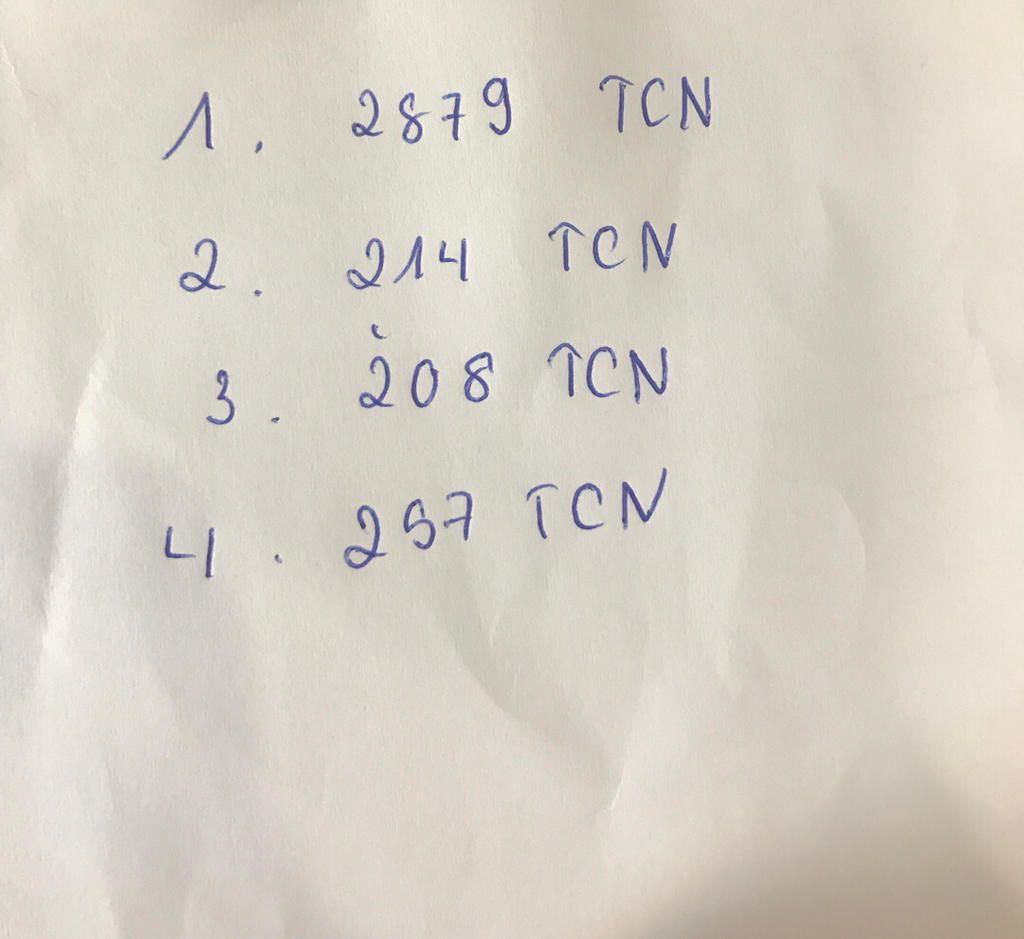 1. 2879 TCN
2. 214 TCN
3. 208 TCN
4. 257 TCN